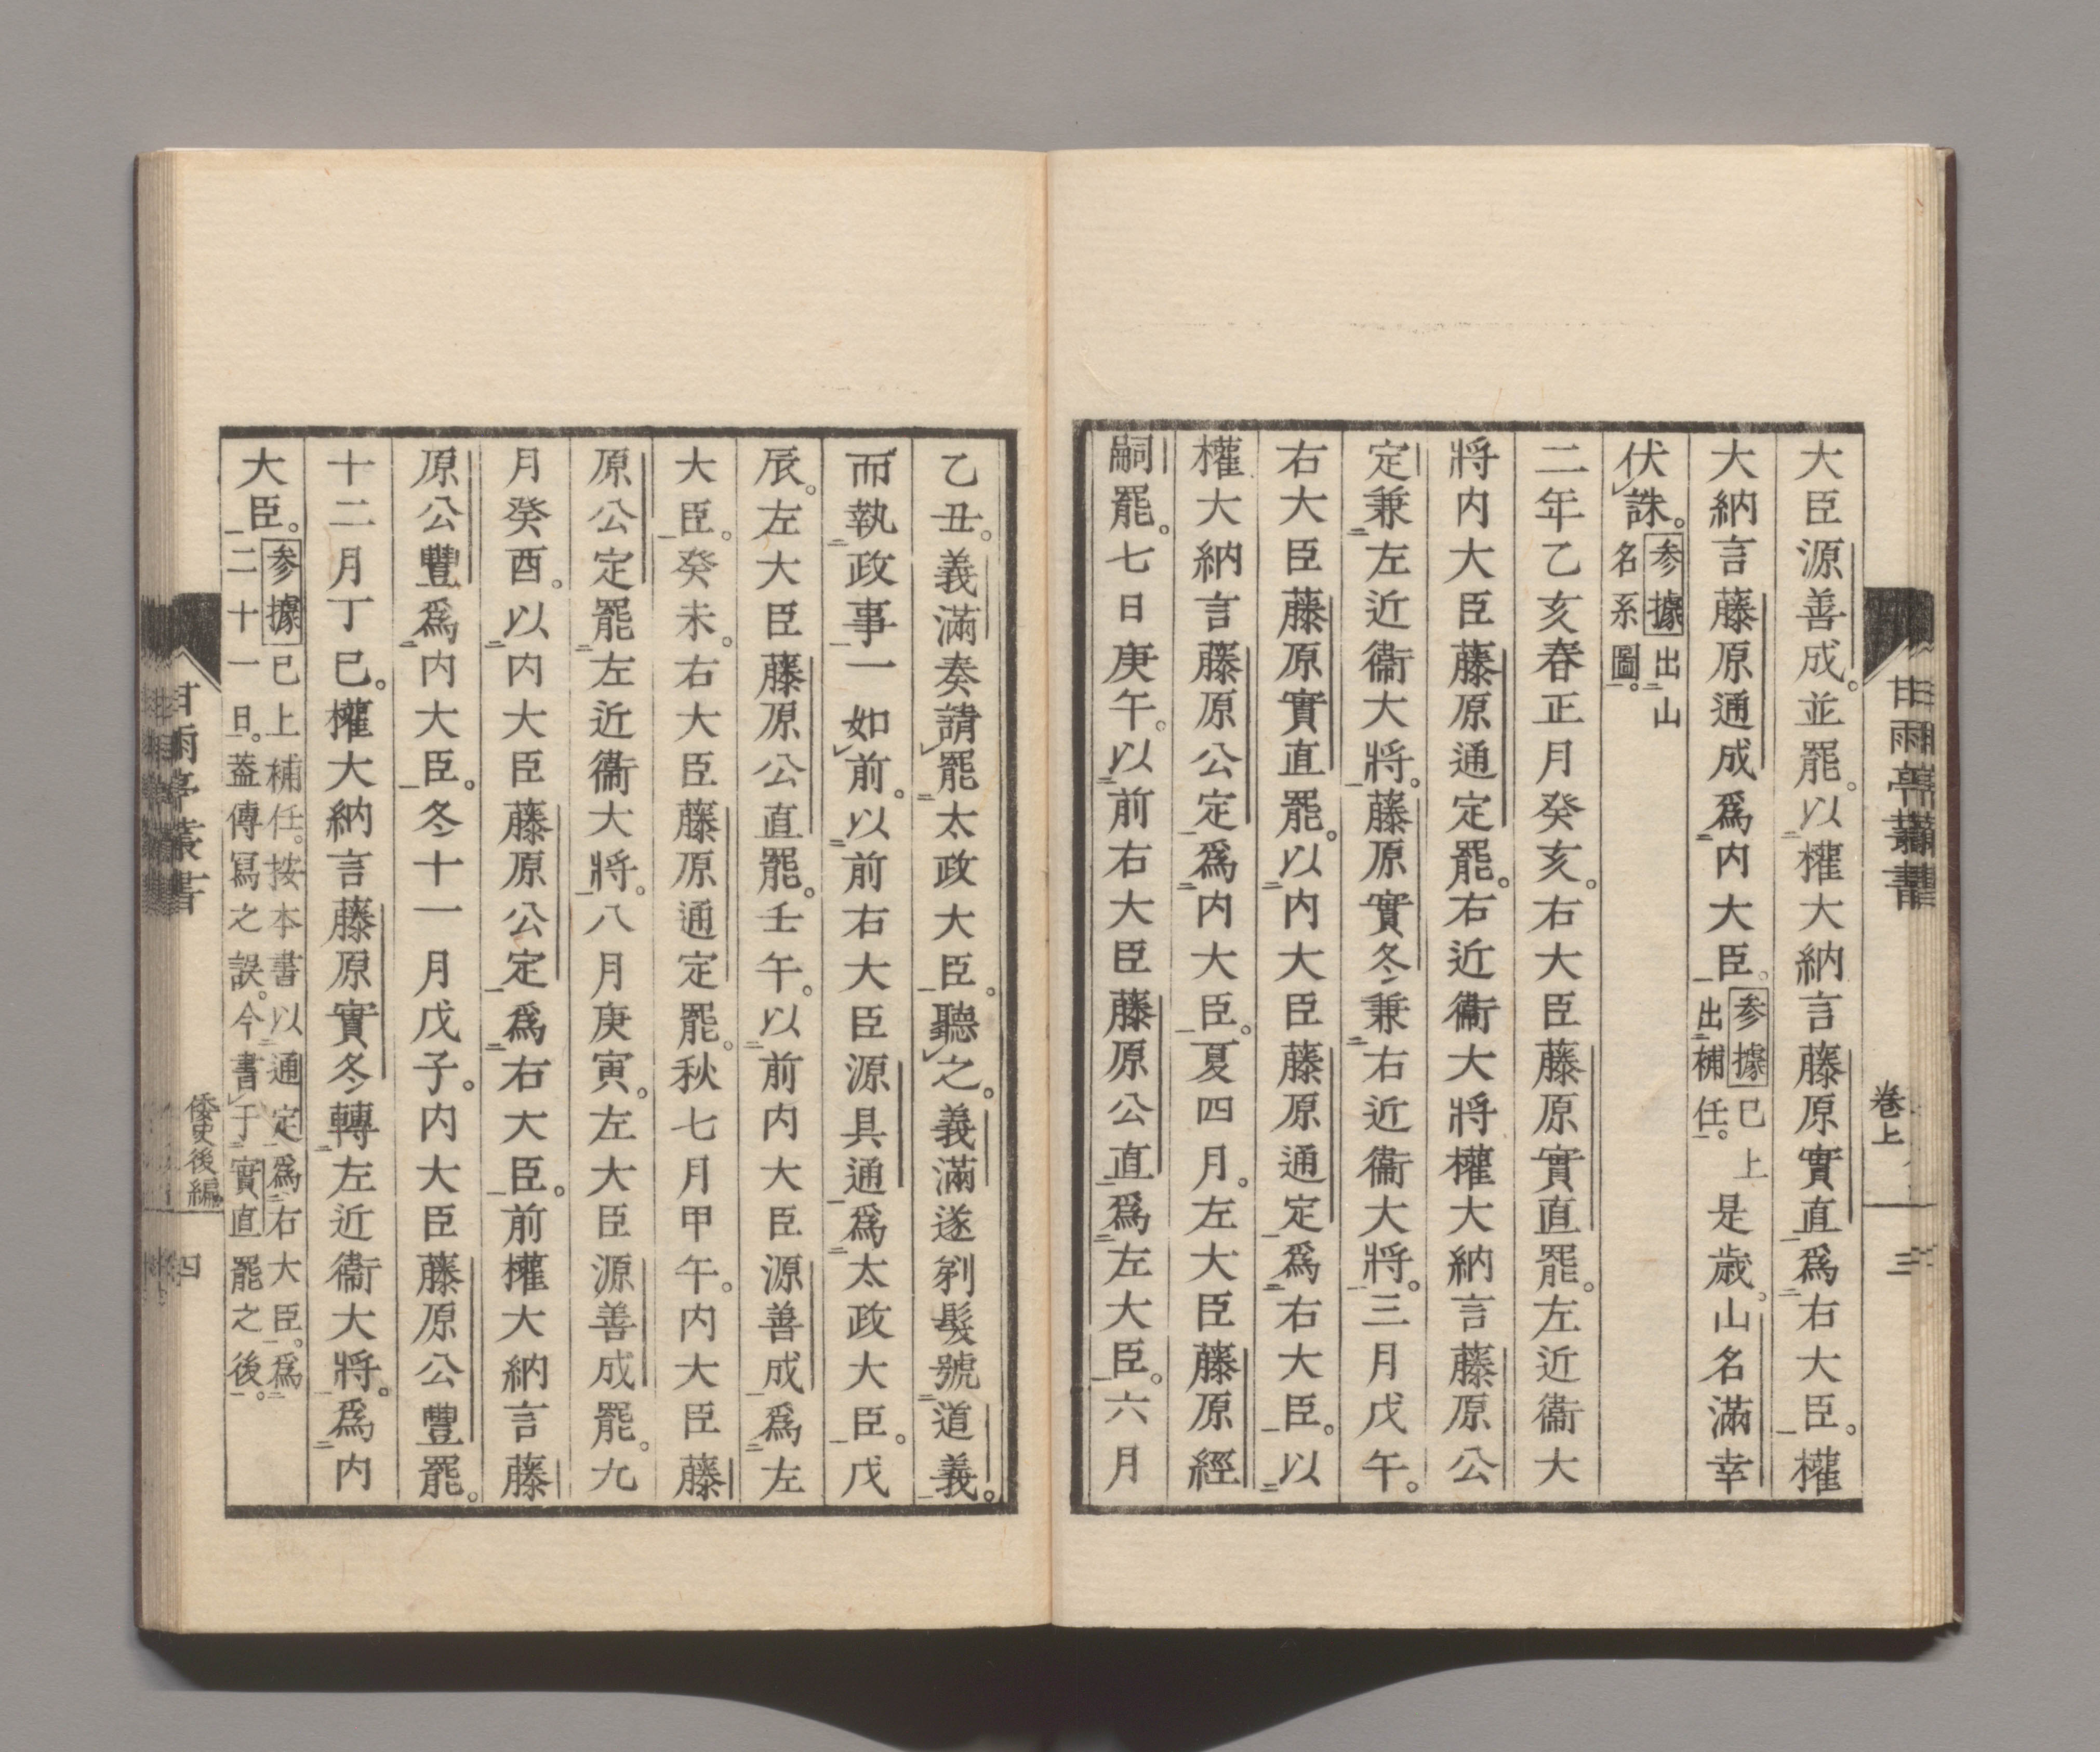 甘雨亭叢書
卷上
三
大臣源善成。並罷。以權大納言藤原實直爲右大臣。權
大納言藤原通成爲内大臣。参據已上出補任。是歳。山名滿幸
伏誅。参據出山名系圖。
二年乙亥春正月癸亥。右大臣藤原實直罷。左近衞大
將内大臣藤原通定罷。右近衞大將權大納言藤原公
定兼左近衞大將。藤原實冬兼右近衞大將。三月戊午。
右大臣藤原實直罷。以内大臣藤原通定爲右大臣。以
權大納言藤原公定爲内大臣。夏四月。左大臣藤原經
嗣罷。七日庚午。以前右大臣藤原公直爲左大臣。六月
乙丑。義滿奏請罷太政大臣。聽之。義滿遂剃髮號道義。
而執政事一如前。以前右大臣源具通爲太政大臣。戊
辰。左大臣藤原公直罷。壬午。以前内大臣源善成爲左
大臣。癸未。右大臣藤原通定罷。秋七月甲午。内大臣藤
原公定罷左近衞大將。八月庚寅。左大臣源善成罷。九
月癸酉。以内大臣藤原公定爲右大臣。前權大納言藤
原公豐爲内大臣。冬十一月戊子。内大臣藤原公豐罷。
十二月丁巳。權大納言藤原實冬轉左近衞大將。爲内
大臣。参據已上補任。按本書以通定爲右大臣。爲二十一日。蓋傳寫之誤。今書于實直罷之後。
甘雨亭叢書
倭史後編
四